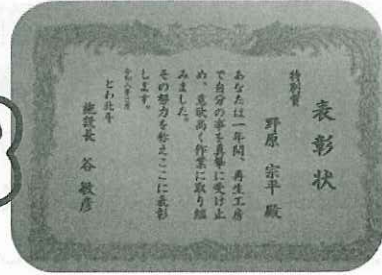 表彰状
特別賞
野原 宗平 殿
あなたは一年間、再生工房
で自分の事を真摯に受け止
め、意欲高く作業に取り組
みました。
その努力を称えここに表彰
します。
令和八年三月
とわ北斗
施設長 谷 敏彦